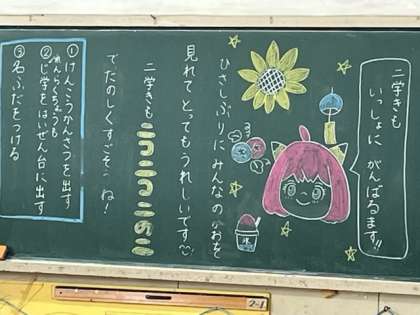 二学きも
いっしょに がんばるます!!
ひさしぶりに みんなのかおを
見れて とっても うれしいです
二学きも ニコニコニのニ
でたのしくすごそうね!
①けんこうかんさつを出す
れんらくちょうも
②じ学をはいぜん台に出す
③名ふだをつける
氷
2-1